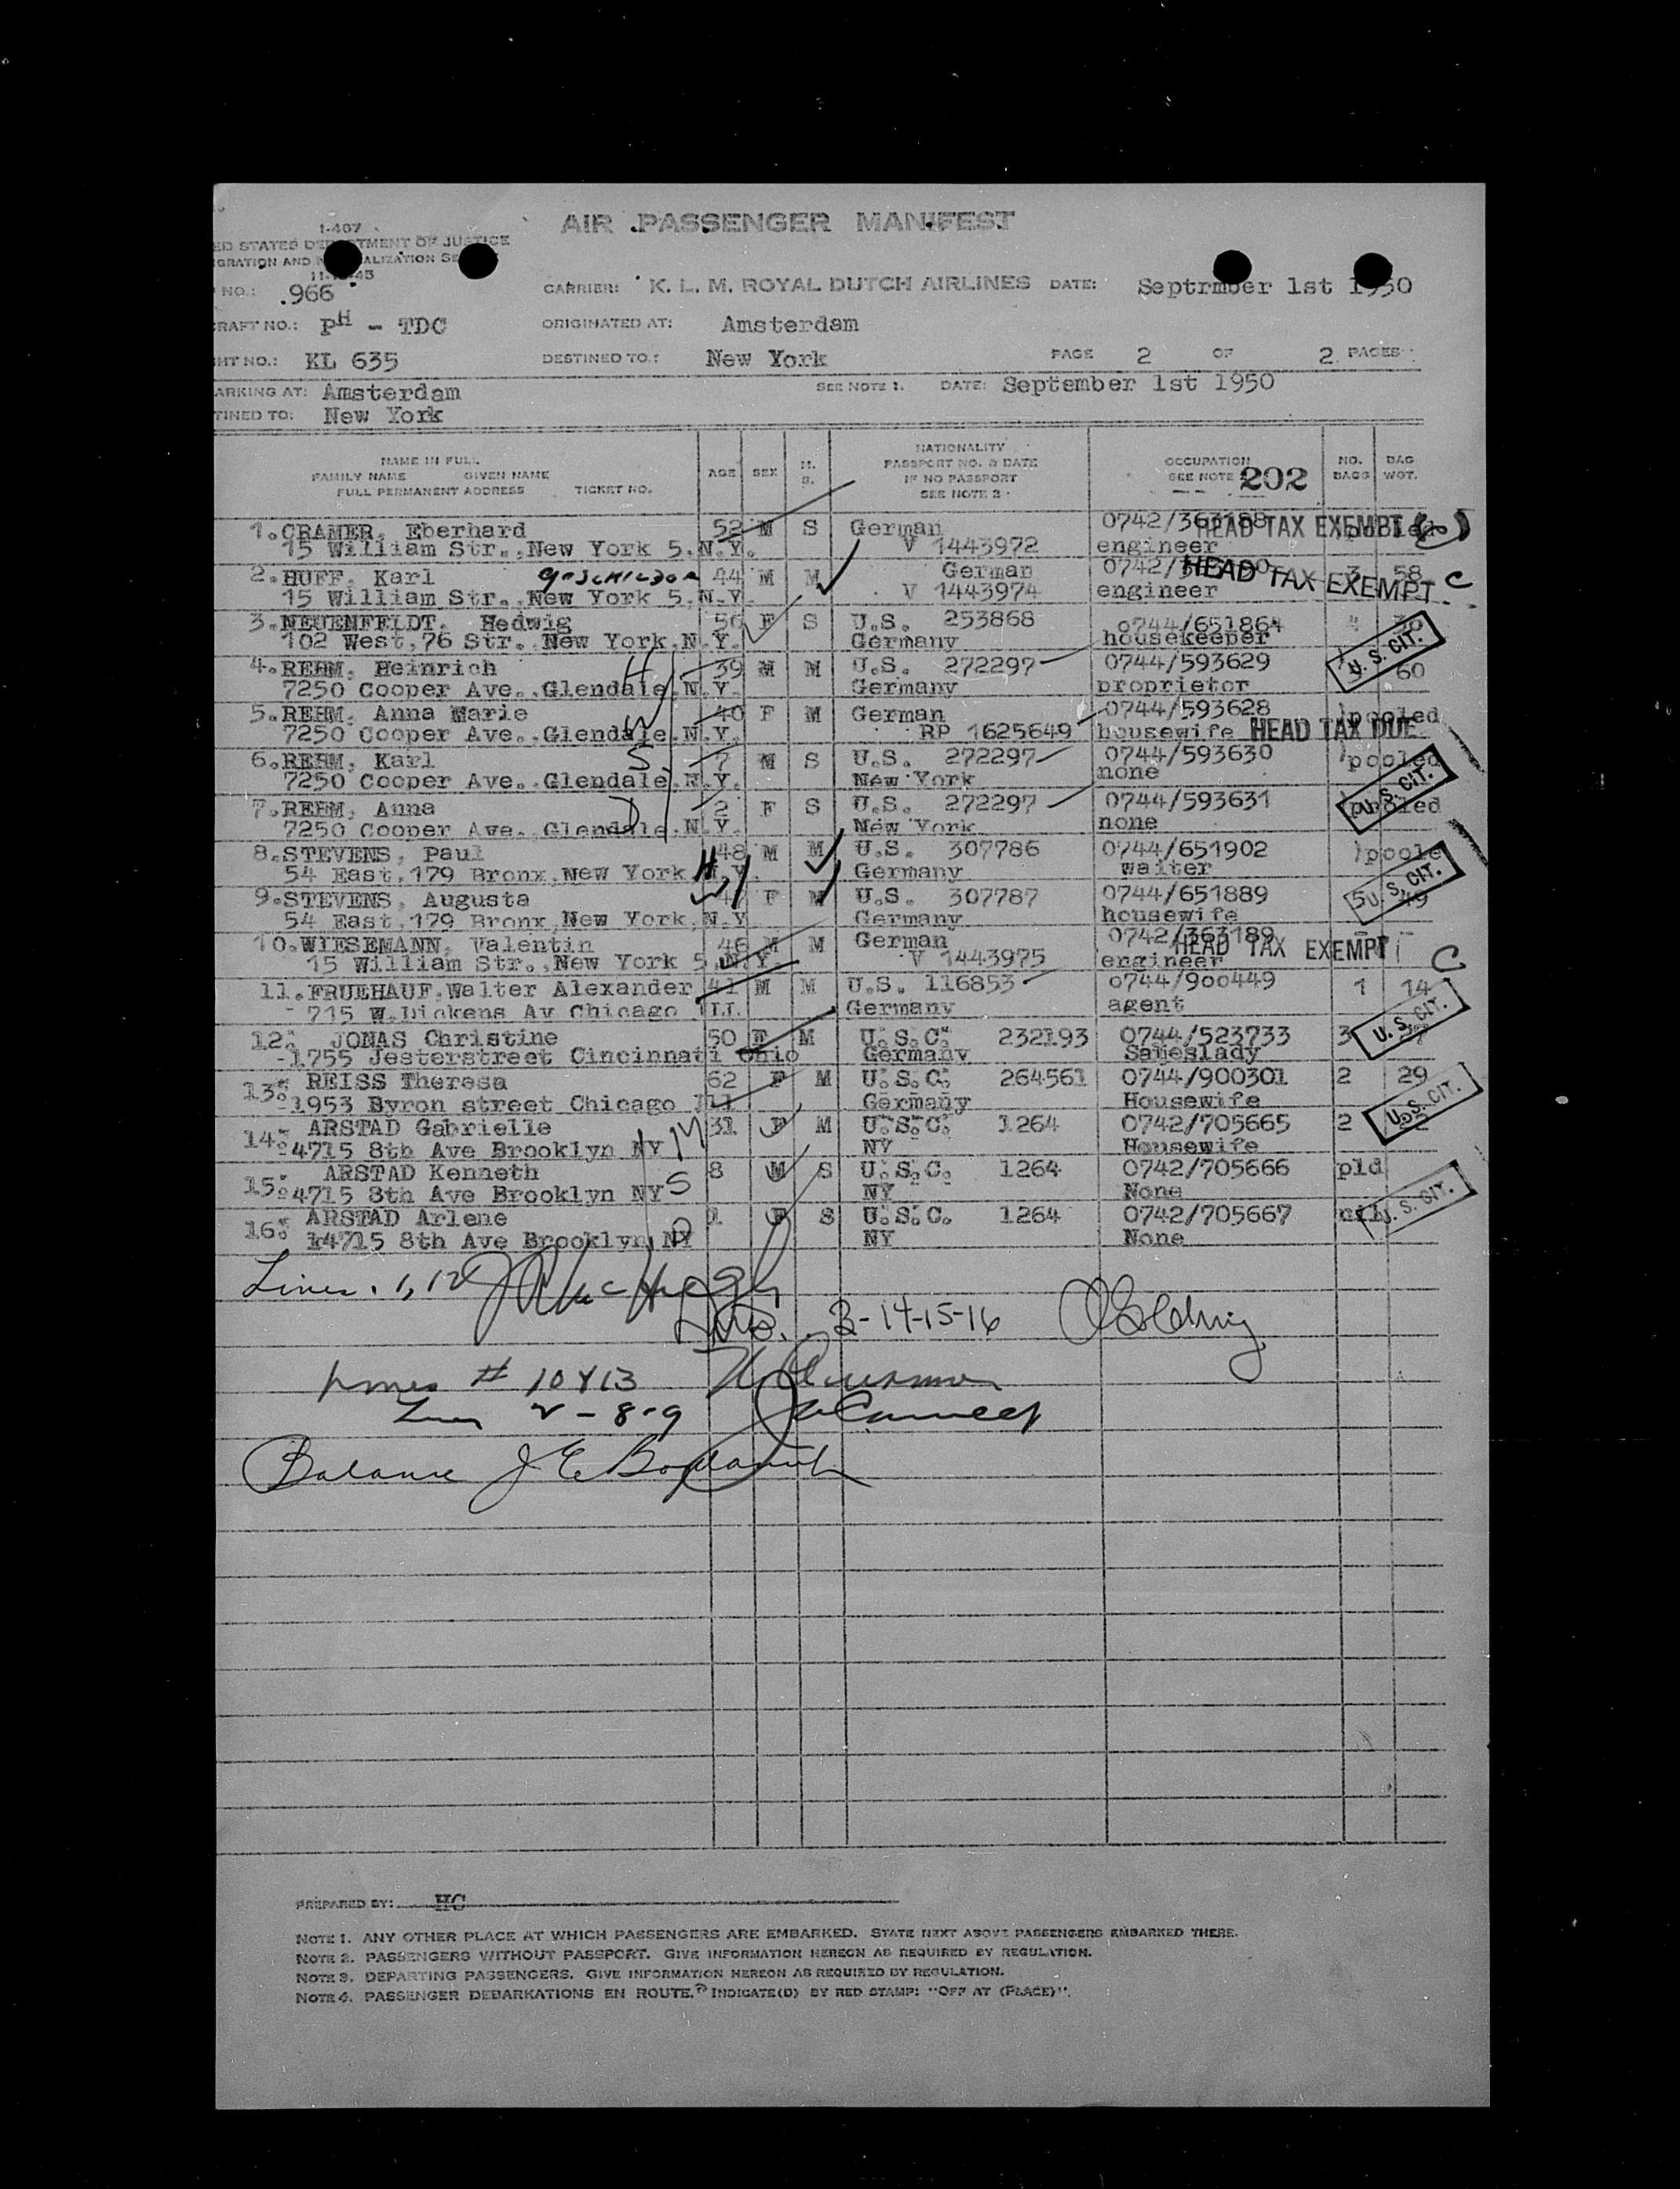 AIR PASSENGER MANIFEST
I-407
ED STATES DEPARTMENT OF JUSTICE
GRATION AND NATURALIZATION SE
NO.: 966 CARRIER: K. L. M. ROYAL DUTCH AIRLINES DATE: Septrmber 1st 1950
RAFT NO.: PH - TDC ORIGINATED AT: Amsterdam
HT NO.: KL 635 DESTINED TO.: New York PAGE 2 OF 2 PAGES
ARKING AT: Amsterdam SEE NOTE 1. DATE: September 1st 1950
TINED TO: New York
NAME IN FULL
FAMILY NAME GIVEN NAME
FULL PERMANENT ADDRESS TICKET NO.
AGE SEX M. S.
NATIONALITY
PASSPORT NO. & DATE
IF NO PASSPORT
SEE NOTE 2
OCCUPATION
SEE NOTE 202
NO. BAGS BAG WGT.
1. CRAMER, Eberhard 52 M S German 0742/363188 HEAD TAX EXEMPT
15 William Str., New York 5. N.Y. V 1443972 engineer
2. HUFF, Karl 44 M M German HEAD TAX EXEMPT 3 58 C
15 William Str., New York 5. N.Y. V 1443974 engineer
3. NEUENFELDT, Hedwig 56 F S U.S. 253868 0744/651864
102 West, 76 Str. New York, N.Y. Germany housekeeper U. S. CIT.
4. REHM, Heinrich H 39 M M U.S. 272297 0744/593629 60
7250 Cooper Ave., Glendale, N.Y. Germany proprietor
5. REHM, Anna Marie W 40 F M German 0744/593628 )pooled
7250 Cooper Ave., Glendale, N.Y. RP 1625649 housewife HEAD TAX DUE
6. REHM, Karl S 7 M S U.S. 272297 0744/593630 )pooled
7250 Cooper Ave., Glendale, N.Y. New York none U. S. CIT.
7. REHM, Anna D 2 F S U.S. 272297 0744/593631 )pooled
7250 Cooper Ave. Glendale, N.Y. New York none
8. STEVENS, Paul H 48 M M U.S. 307786 0744/651902 )poole
54 East, 179 Bronx, New York, N.Y. Germany waiter U. S. CIT.
9. STEVENS, Augusta W 47 F M U.S. 307787 0744/651889 5 49
54 East, 179 Bronx, New York, N.Y Germany housewife
10. WIESEMANN, Valentin 46 M M German 0742/363189 HEAD TAX EXEMPT C
15 William Str., New York 5. N.Y. V 1443975 engineer
11. FRUEHAUF, Walter Alexander 41 M M U.S. 116853 0744/900449 1 14
715 W.Dickens Av Chicago ILL Germany agent U. S. CIT.
12. JONAS Christine 50 F M U.S.C. 232193 0744/523733 3
-1755 Jesterstreet Cincinnati Ohio Germany Saleslady
13. REISS Theresa 62 F M U.S.C. 264561 0744/900301 2 29
-1953 Byron street Chicago Ill Germany Housewife U. S. CIT.
14. ARSTAD Gabrielle M 31 F M U.S.C. 1264 0742/705665 2
4715 8th Ave Brooklyn NY NY Housewife
15. ARSTAD Kenneth S 8 M S U.S.C. 1264 0742/705666 pld
4715 8th Ave Brooklyn NY NY None
16. ARSTAD Arlene D 1 F S U.S.C. 1264 0742/705667 nil U. S. CIT.
14715 8th Ave Brooklyn NY NY None
Lines 1, 12
3-14-15-16
Lines # 10 & 13
2 - 8-9
Balance J E
PREPARED BY: HC
NOTE 1. ANY OTHER PLACE AT WHICH PASSENGERS ARE EMBARKED. STATE NEXT ABOVE PASSENGERS EMBARKED THERE.
NOTE 2. PASSENGERS WITHOUT PASSPORT. GIVE INFORMATION HEREON AS REQUIRED BY REGULATION.
NOTE 3. DEPARTING PASSENGERS. GIVE INFORMATION HEREON AS REQUIRED BY REGULATION.
NOTE 4. PASSENGER DEBARKATIONS EN ROUTE. INDICATE(D) BY RED STAMP: "OFF AT (PLACE)".